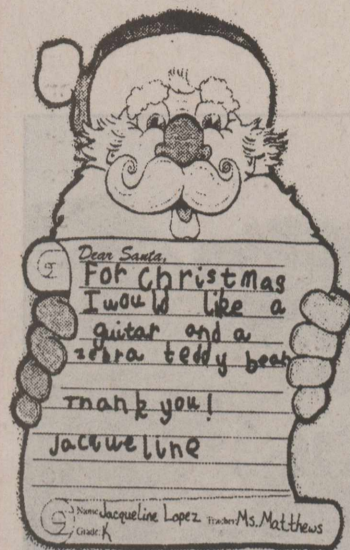 Dear Santa,
For Christmas
I would like a
guitar and a
zebra teddy bear
Thank you!
Jacqueline
Name: Jacqueline Lopez Teacher: Ms. Matthews
Grade: K